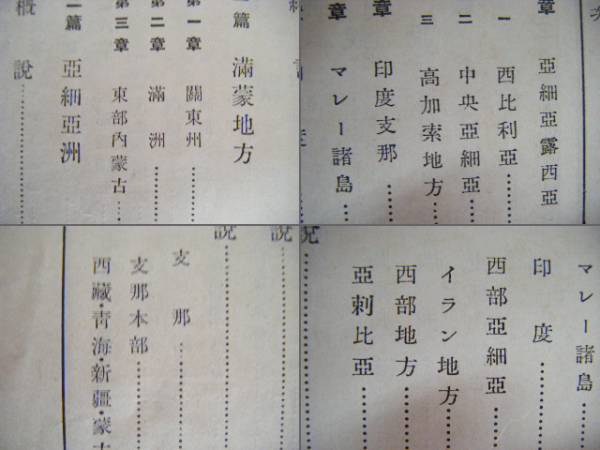 一篇 滿蒙地方
第一章 關東州
第二章 滿洲
第三章 東部內蒙古
二篇 亞細亞洲
概説
章 亞細亞露西亞
一 西比利亞
二 中央亞細亞
三 高加索地方
章 印度支那
章 マレー諸島
説
説
支那
支那本部
西藏・青海・新疆・蒙古
マレー諸島
印度
西部亞細亞
イラン地方
西部地方
亞刺比亞
説